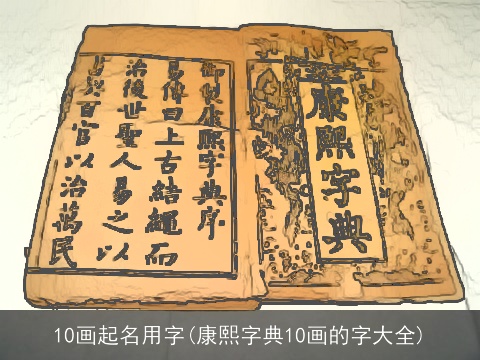 康熙字典
御製康熙字典序
易傳曰上古結繩而
治後世聖人易之以
書契百官以治萬民
10画起名用字(康熙字典10画的字大全)